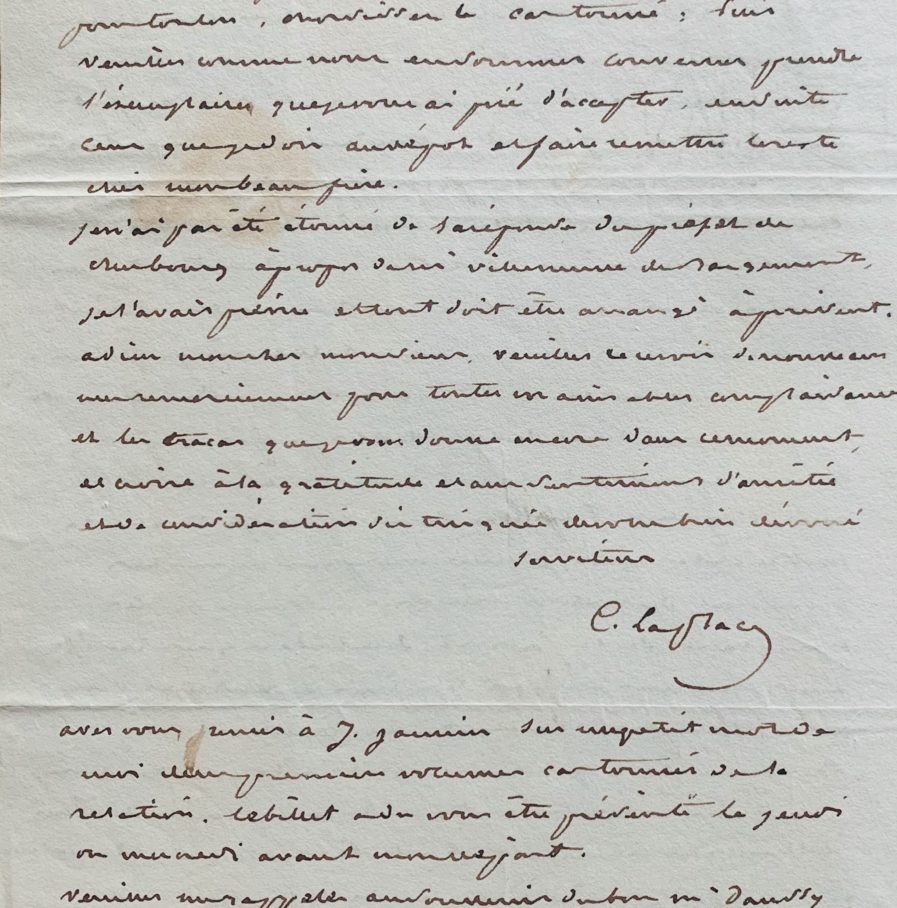 pour toulon, choisissez le cartonné ; puis
veuillez comme nous en sommes convenus prendre
l'exemplaire que je vous ai prié d'accepter, ensuite
ceux que je dois au dépôt et faire remettre le reste
chez mon beau frère.
je n'ai pas été étonné de la réponse du préfet de
cherbourg à propos de
je l'avais prévu et tout doit être arrangé à présent.
adieu mon cher monsieur, veuillez recevoir de nouveau
mes remerciemens pour toutes vos aimables complaisances
et les tracas que je vous donne encore dans ce moment,
et croire à la gratitude et aux sentimens d'amitié
et de considération distinguée de votre bien dévoué
serviteur
C. Laplace
avez vous remis à J. Janin sur un petit mot de
moi deux premiers volumes cartonnés de la
relation. le billet a du vous être présenté le jeudi
ou mercredi avant mon départ.
veuillez me rappeler au souvenir du bon mr Daussy